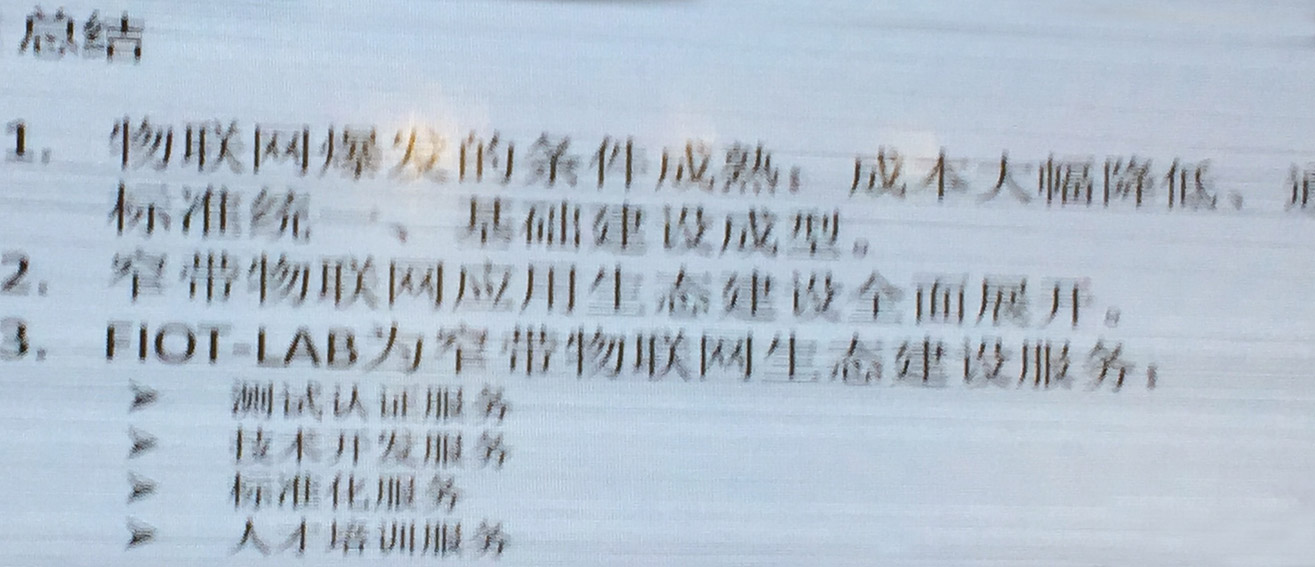 总结
1. 物联网爆发的条件成熟：成本大幅降低、
标准统一、基础建设成型。
2. 窄带物联网应用生态建设全面展开。
3. FIOT-LAB为窄带物联网生态建设服务：
➤ 测试认证服务
➤ 技术开发服务
➤ 标准化服务
➤ 人才培训服务